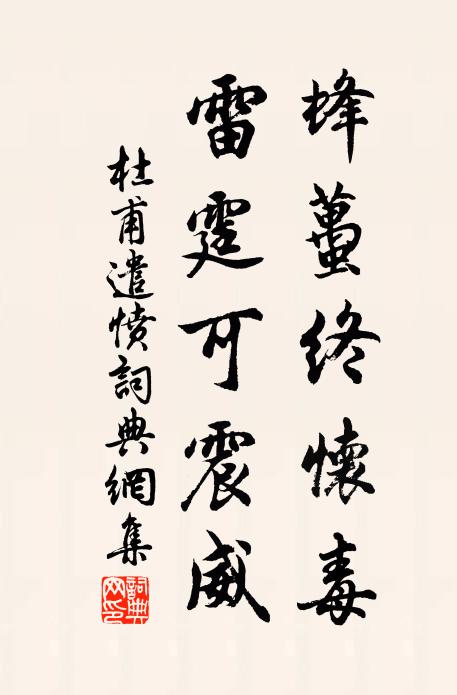 蜂蠆終懷毒
雷霆可震威
杜甫遣憤詞典網集
詞典網印